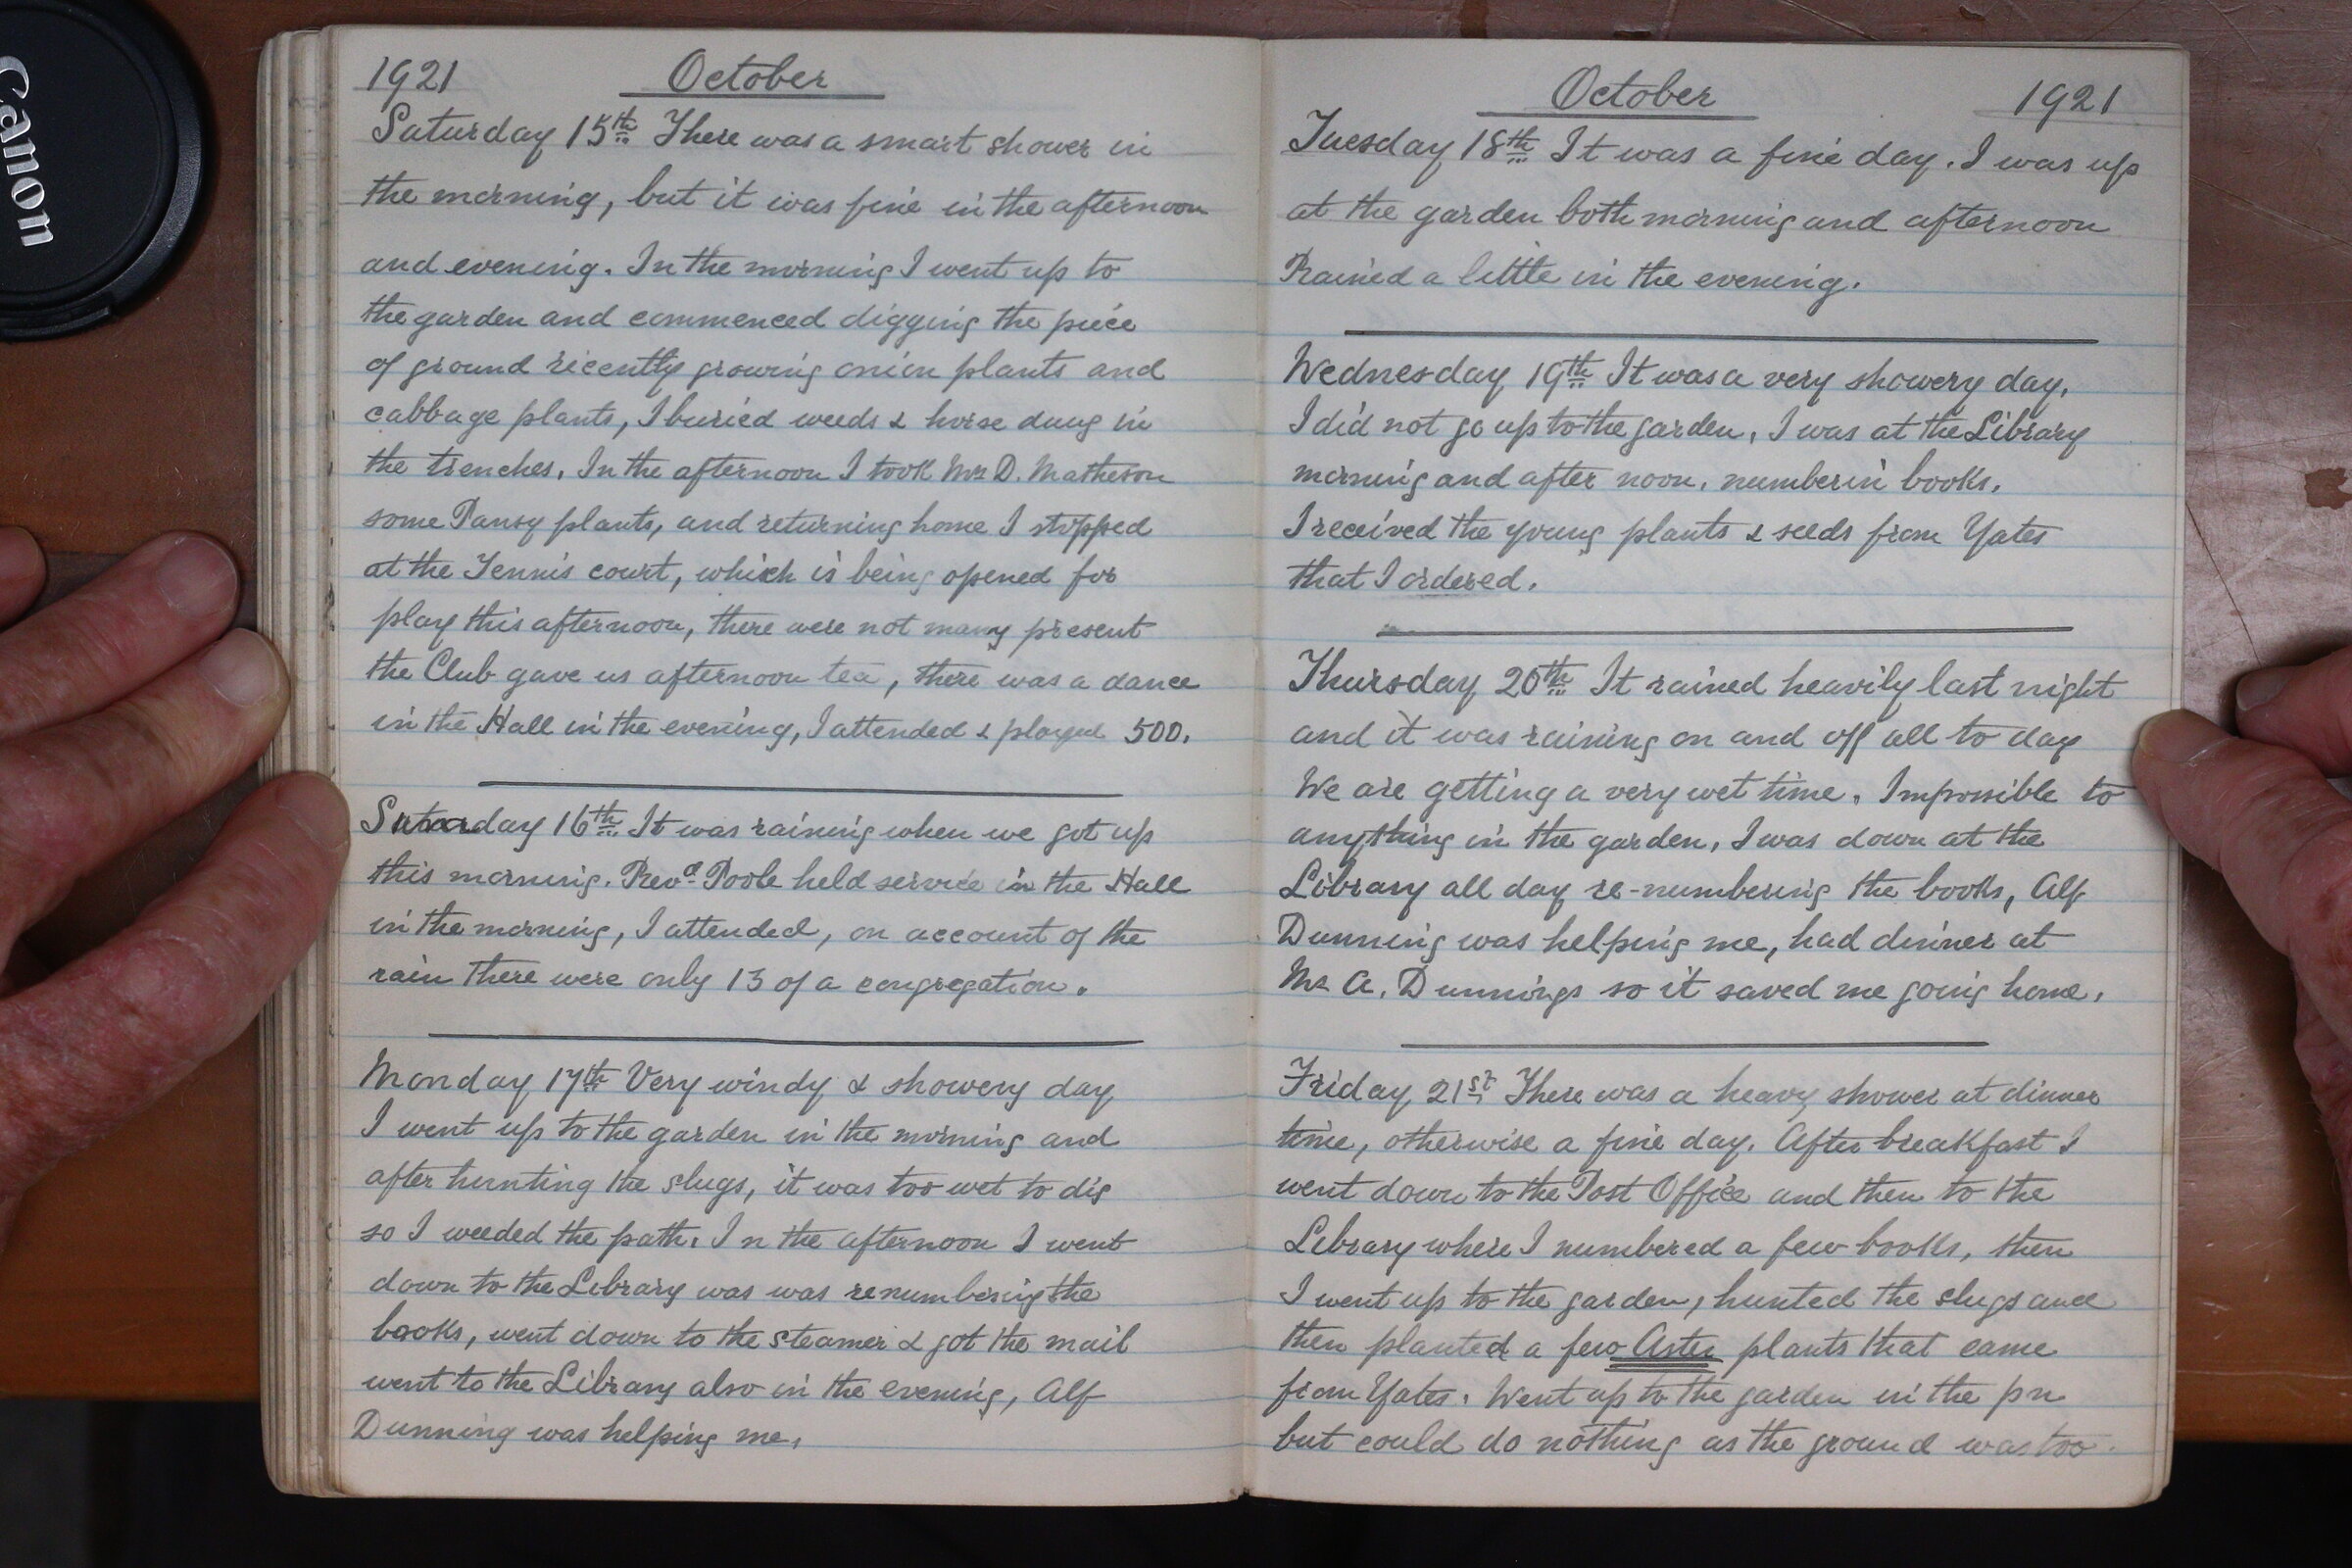 Canon
1921 October
Saturday 15th There was a smart shower in
the morning, but it was fine in the afternoon
and evening. In the morning I went up to
the garden and commenced digging the piece
of ground recently growing onion plants and
cabbage plants, I buried weeds & horse dung in
the trenches. In the afternoon I took Mrs D. Matheson
some Pansy plants, and returning home I stopped
at the Tennis court, which is being opened for
play this afternoon, there were not many present
the Club gave us afternoon tea, there was a dance
in the Hall in the evening, I attended & played 500.
day 16th It was raining when we got up
this morning. Revd Poole held service in the Hall
in the morning, I attended, on account of the
rain there were only 13 of a congregation.
Monday 17th Very windy & showery day
I went up to the garden in the morning and
after hunting the slugs, it was too wet to dig
so I weeded the path. In the afternoon I went
down to the Library was was renumbering the
books, went down to the steamer & got the mail
went to the Library also in the evening, Alf
Dunning was helping me.
October 1921
Tuesday 18th It was a fine day. I was up
at the garden both morning and afternoon
Rained a little in the evening.
Wednesday 19th It was a very showery day.
I did not go up to the garden, I was at the Library
morning and after noon, numberin books.
I received the young plants & seeds from Yates
that I ordered.
Thursday 20th It rained heavily last night
and it was raining on and off all to day
We are getting a very wet time. Impossible to
anything in the garden, I was down at the
Library all day re-numbering the books, Alf
Dunning was helping me, had dinner at
A. Dunnings so it saved me going home.
Friday 21st There was a heavy shower at dinner
time, otherwise a fine day. After breakfast I
went down to the Post Office and then to the
Library where I numbered a few books, then
I went up to the garden, hunted the slugs and
then planted a few Aster plants that came
from Yates. Went up to the garden in the pm
but could do nothing as the ground was too